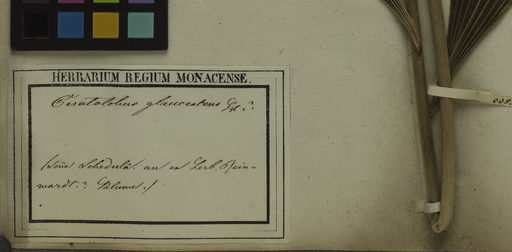 HERBARIUM REGIUM MONACENSE.
Ceratolobus glaucescens ?
(sine Schedula. an ex herb. Rein-
wardt.? Blume.)